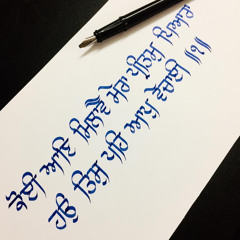 ਕੋਈ ਆਣਿ ਮਿਲਾਵੈ ਮੇਰਾ ਪ੍ਰੀਤਮੁ ਪਿਆਰਾ
ਹਉ ਤਿਸੁ ਪਹਿ ਆਪੁ ਵੇਚਾਈ ॥੧॥